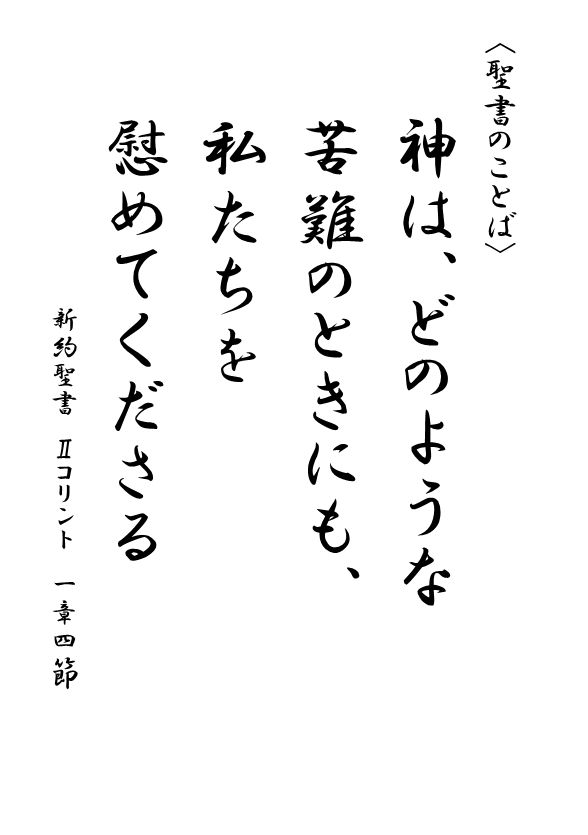 〈聖書のことば〉
神は、どのような
苦難のときにも、
私たちを
慰めてくださる
新約聖書 Ⅱコリント 一章四節